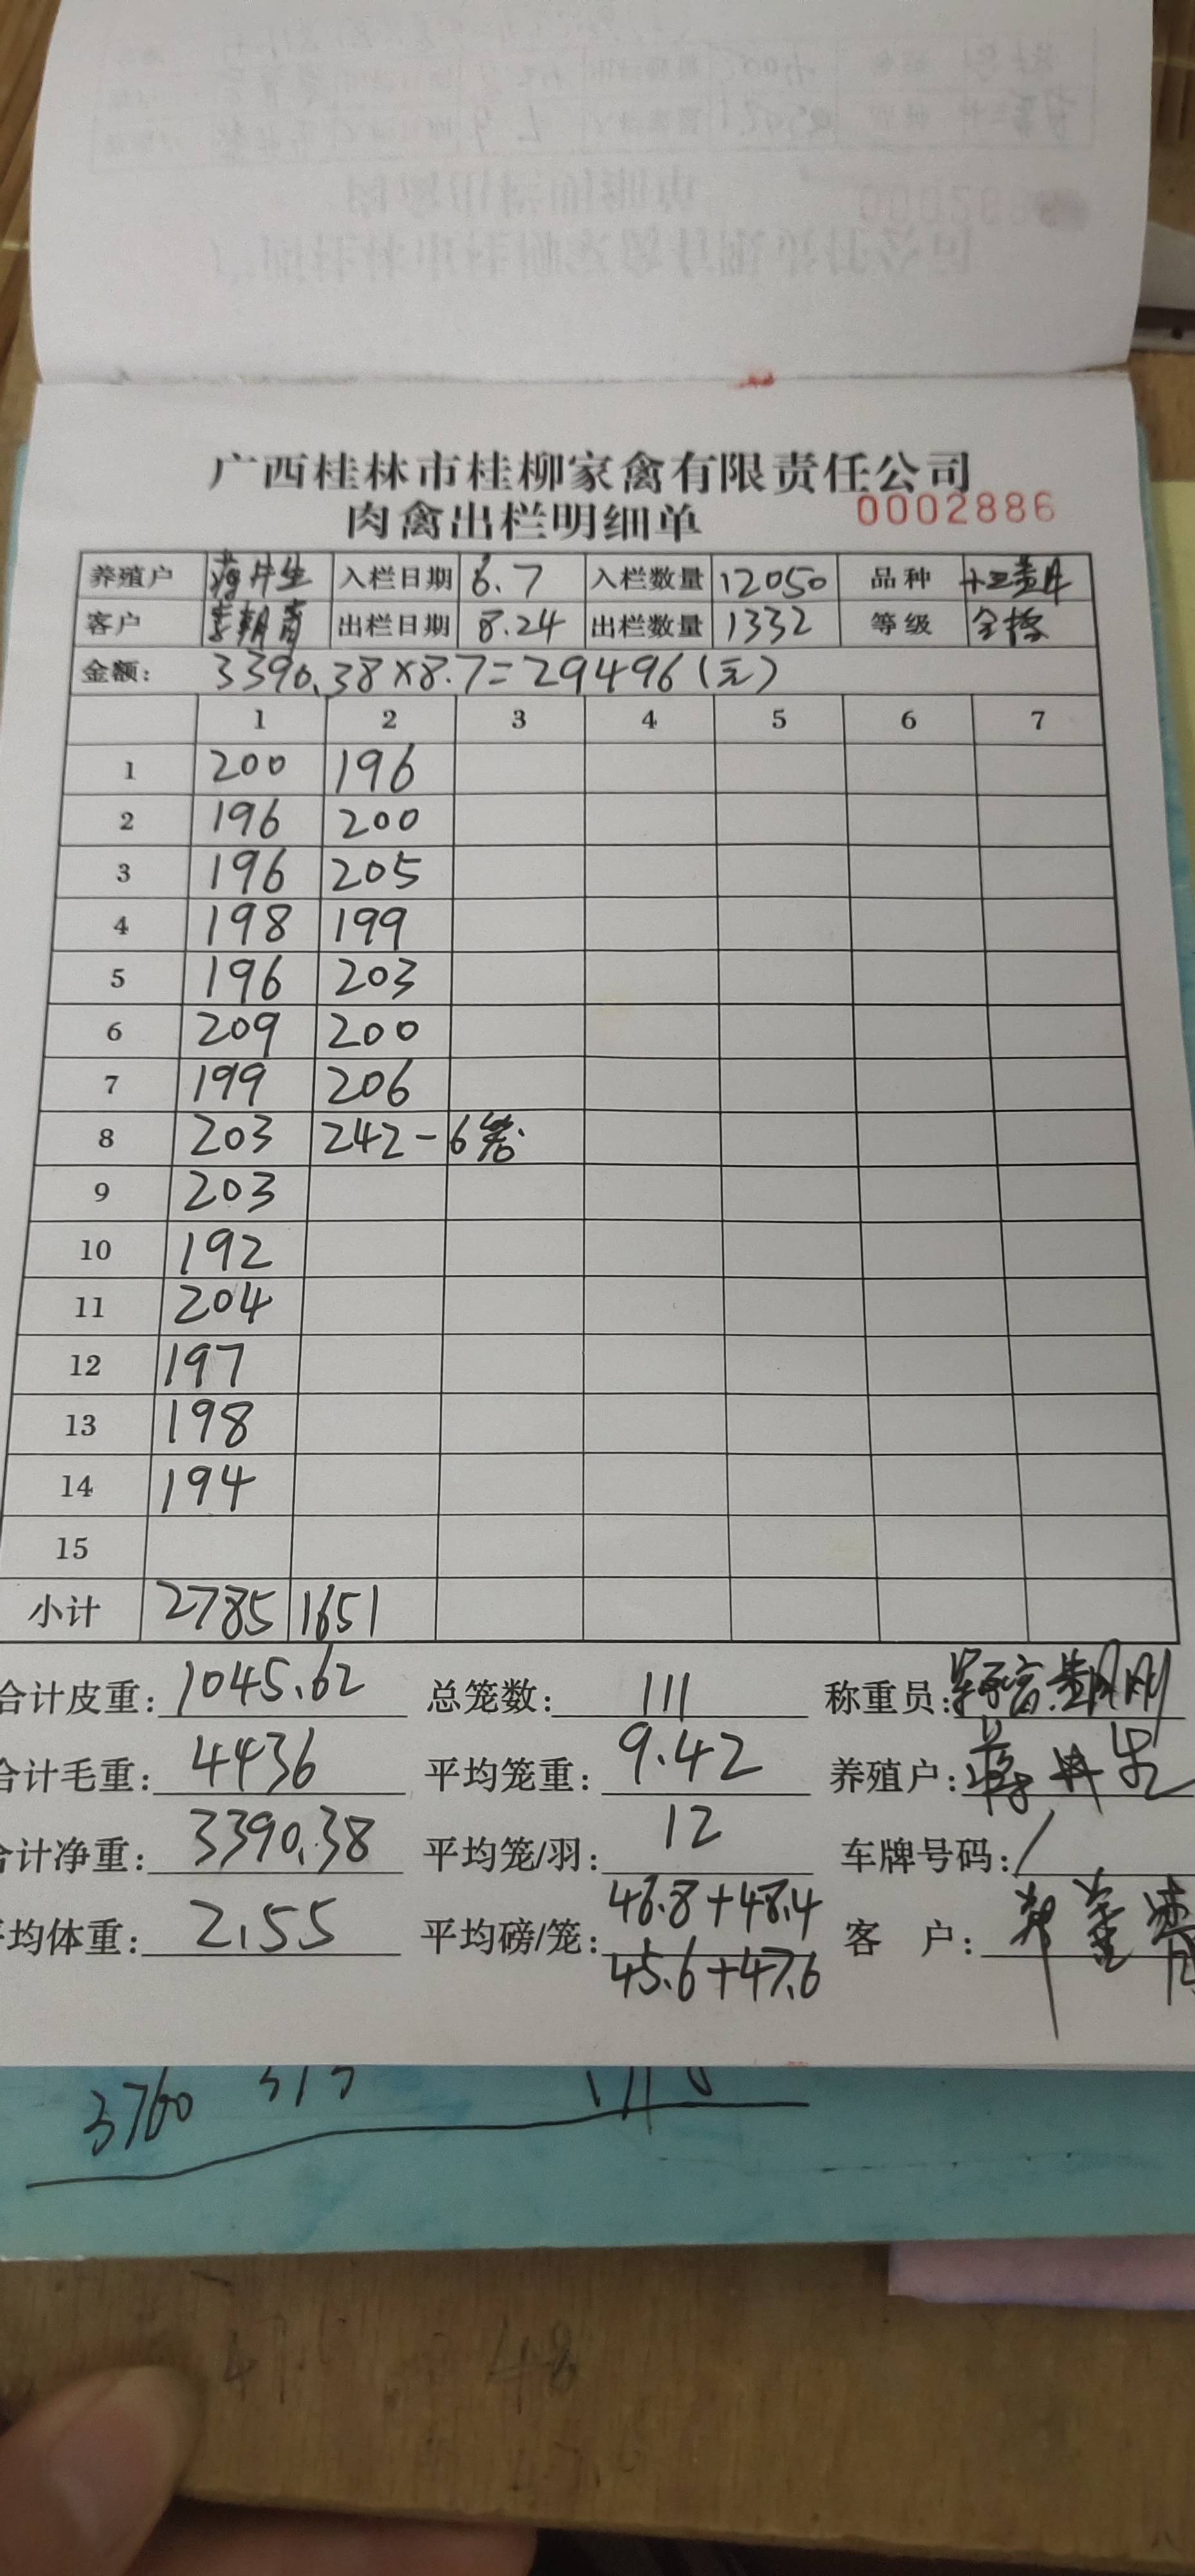 广西桂林市桂柳家禽有限责任公司
肉禽出栏明细单 0002886
养殖户 蒋井生 入栏日期 6.7 入栏数量 12050 品种
客户 出栏日期 8.24 出栏数量 1332 等级
金额: 3390.38×8.7=29496(元)
1 2 3 4 5 6 7
1 200 196
2 196 200
3 196 205
4 198 199
5 196 203
6 209 200
7 199 206
8 203 242-6笼
9 203
10 192
11 204
12 197
13 198
14 194
15
小计 2785 1651
合计皮重: 1045.62 总笼数: 111 称重员:
合计毛重: 4436 平均笼重: 9.42 养殖户: 蒋井生
合计净重: 3390.38 平均笼/羽: 12 车牌号码: /
平均体重: 2.55 平均磅/笼: 46.8+48.4 客 户:
45.6+47.6
3760
48